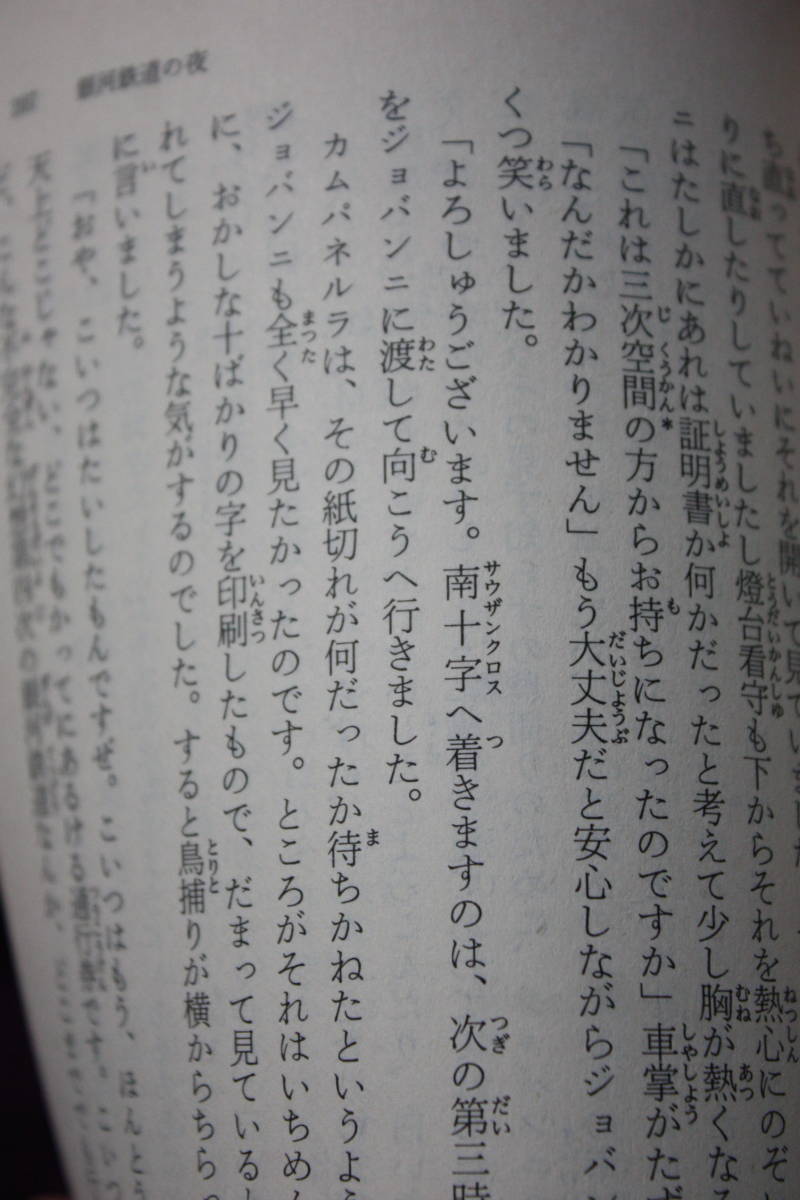 銀河鉄道の夜
ち直ってていねいにそれを開いて見ていました
りに直したりしていましたし燈台看守も下からそれを熱心にのぞ
ニはたしかにあれは証明書か何かだったと考えて少し胸が熱くな
「これは三次空間の方からお持ちになったのですか」車掌がたず
「なんだかわかりません」もう大丈夫だと安心しながらジョバ
くつ笑いました。
「よろしゅうございます。南十字へ着きますのは、次の第三時
をジョバンニに渡して向こうへ行きました。
カムパネルラは、その紙切れが何だったか待ちかねたというよう
ジョバンニも全く早く見たかったのです。ところがそれはいちめん
に、おかしな十ばかりの字を印刷したもので、だまって見ていると
れてしまうような気がするのでした。すると鳥捕りが横からちらっ
に言いました。
「おや、こいつはたいしたもんですぜ。こいつはもう、ほんとう
天上どこじゃない、どこでもかってにあるける通行券です。こいつ